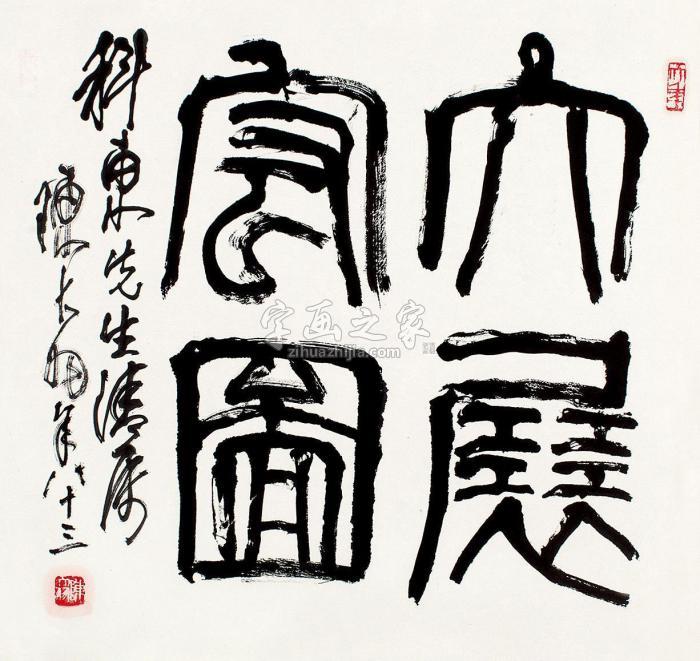 大展
宏图
科東先生清属
陳大羽年八十三
字画之家
zihuazhijia.com
大羽